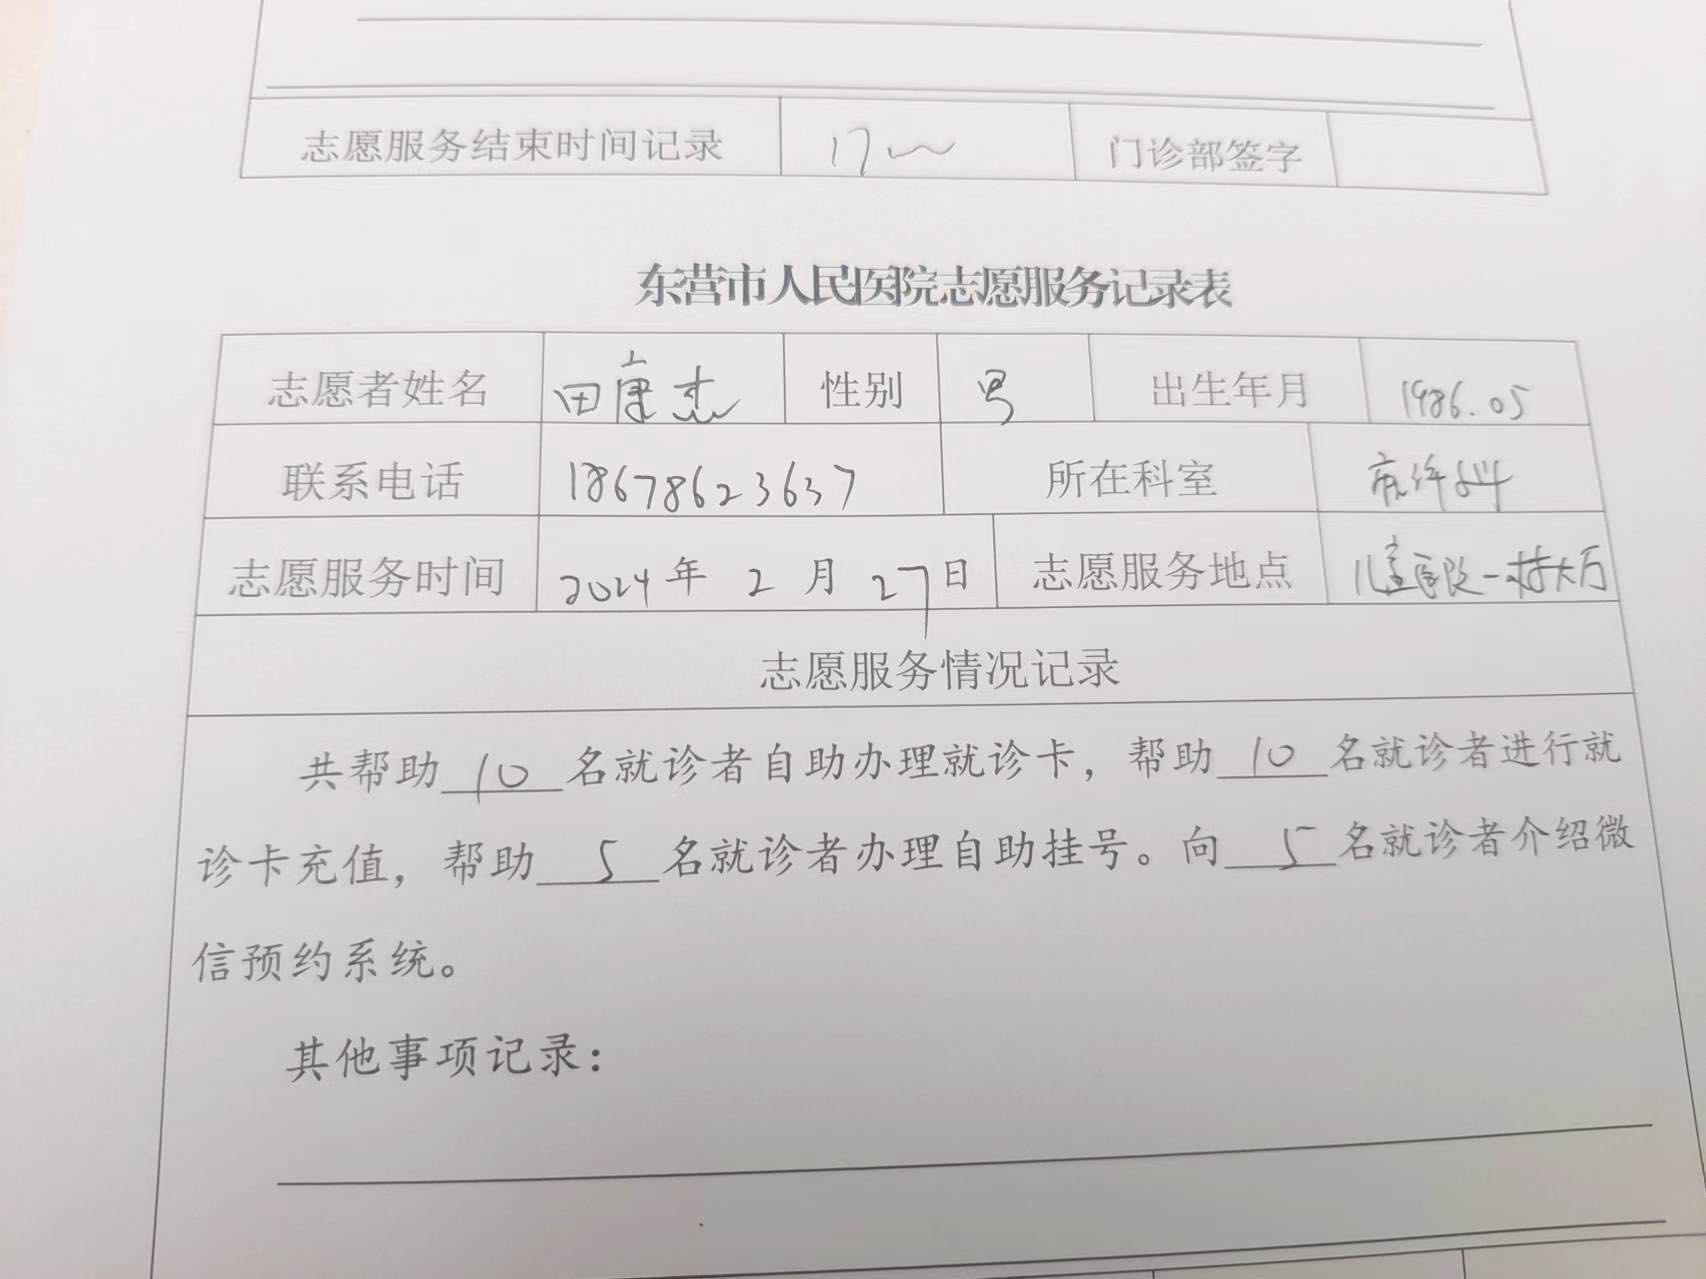 志愿服务结束时间记录 17 门诊部签字
东营市人民医院志愿服务记录表
志愿者姓名 田康杰 性别 男 出生年月 1986.05
联系电话 18678623637 所在科室
志愿服务时间 2024年 2 月 27日 志愿服务地点 儿童医院一楼大厅
志愿服务情况记录
共帮助 10 名就诊者自助办理就诊卡，帮助 10 名就诊者进行就
诊卡充值，帮助 5 名就诊者办理自助挂号。向 5 名就诊者介绍微
信预约系统。
其他事项记录：